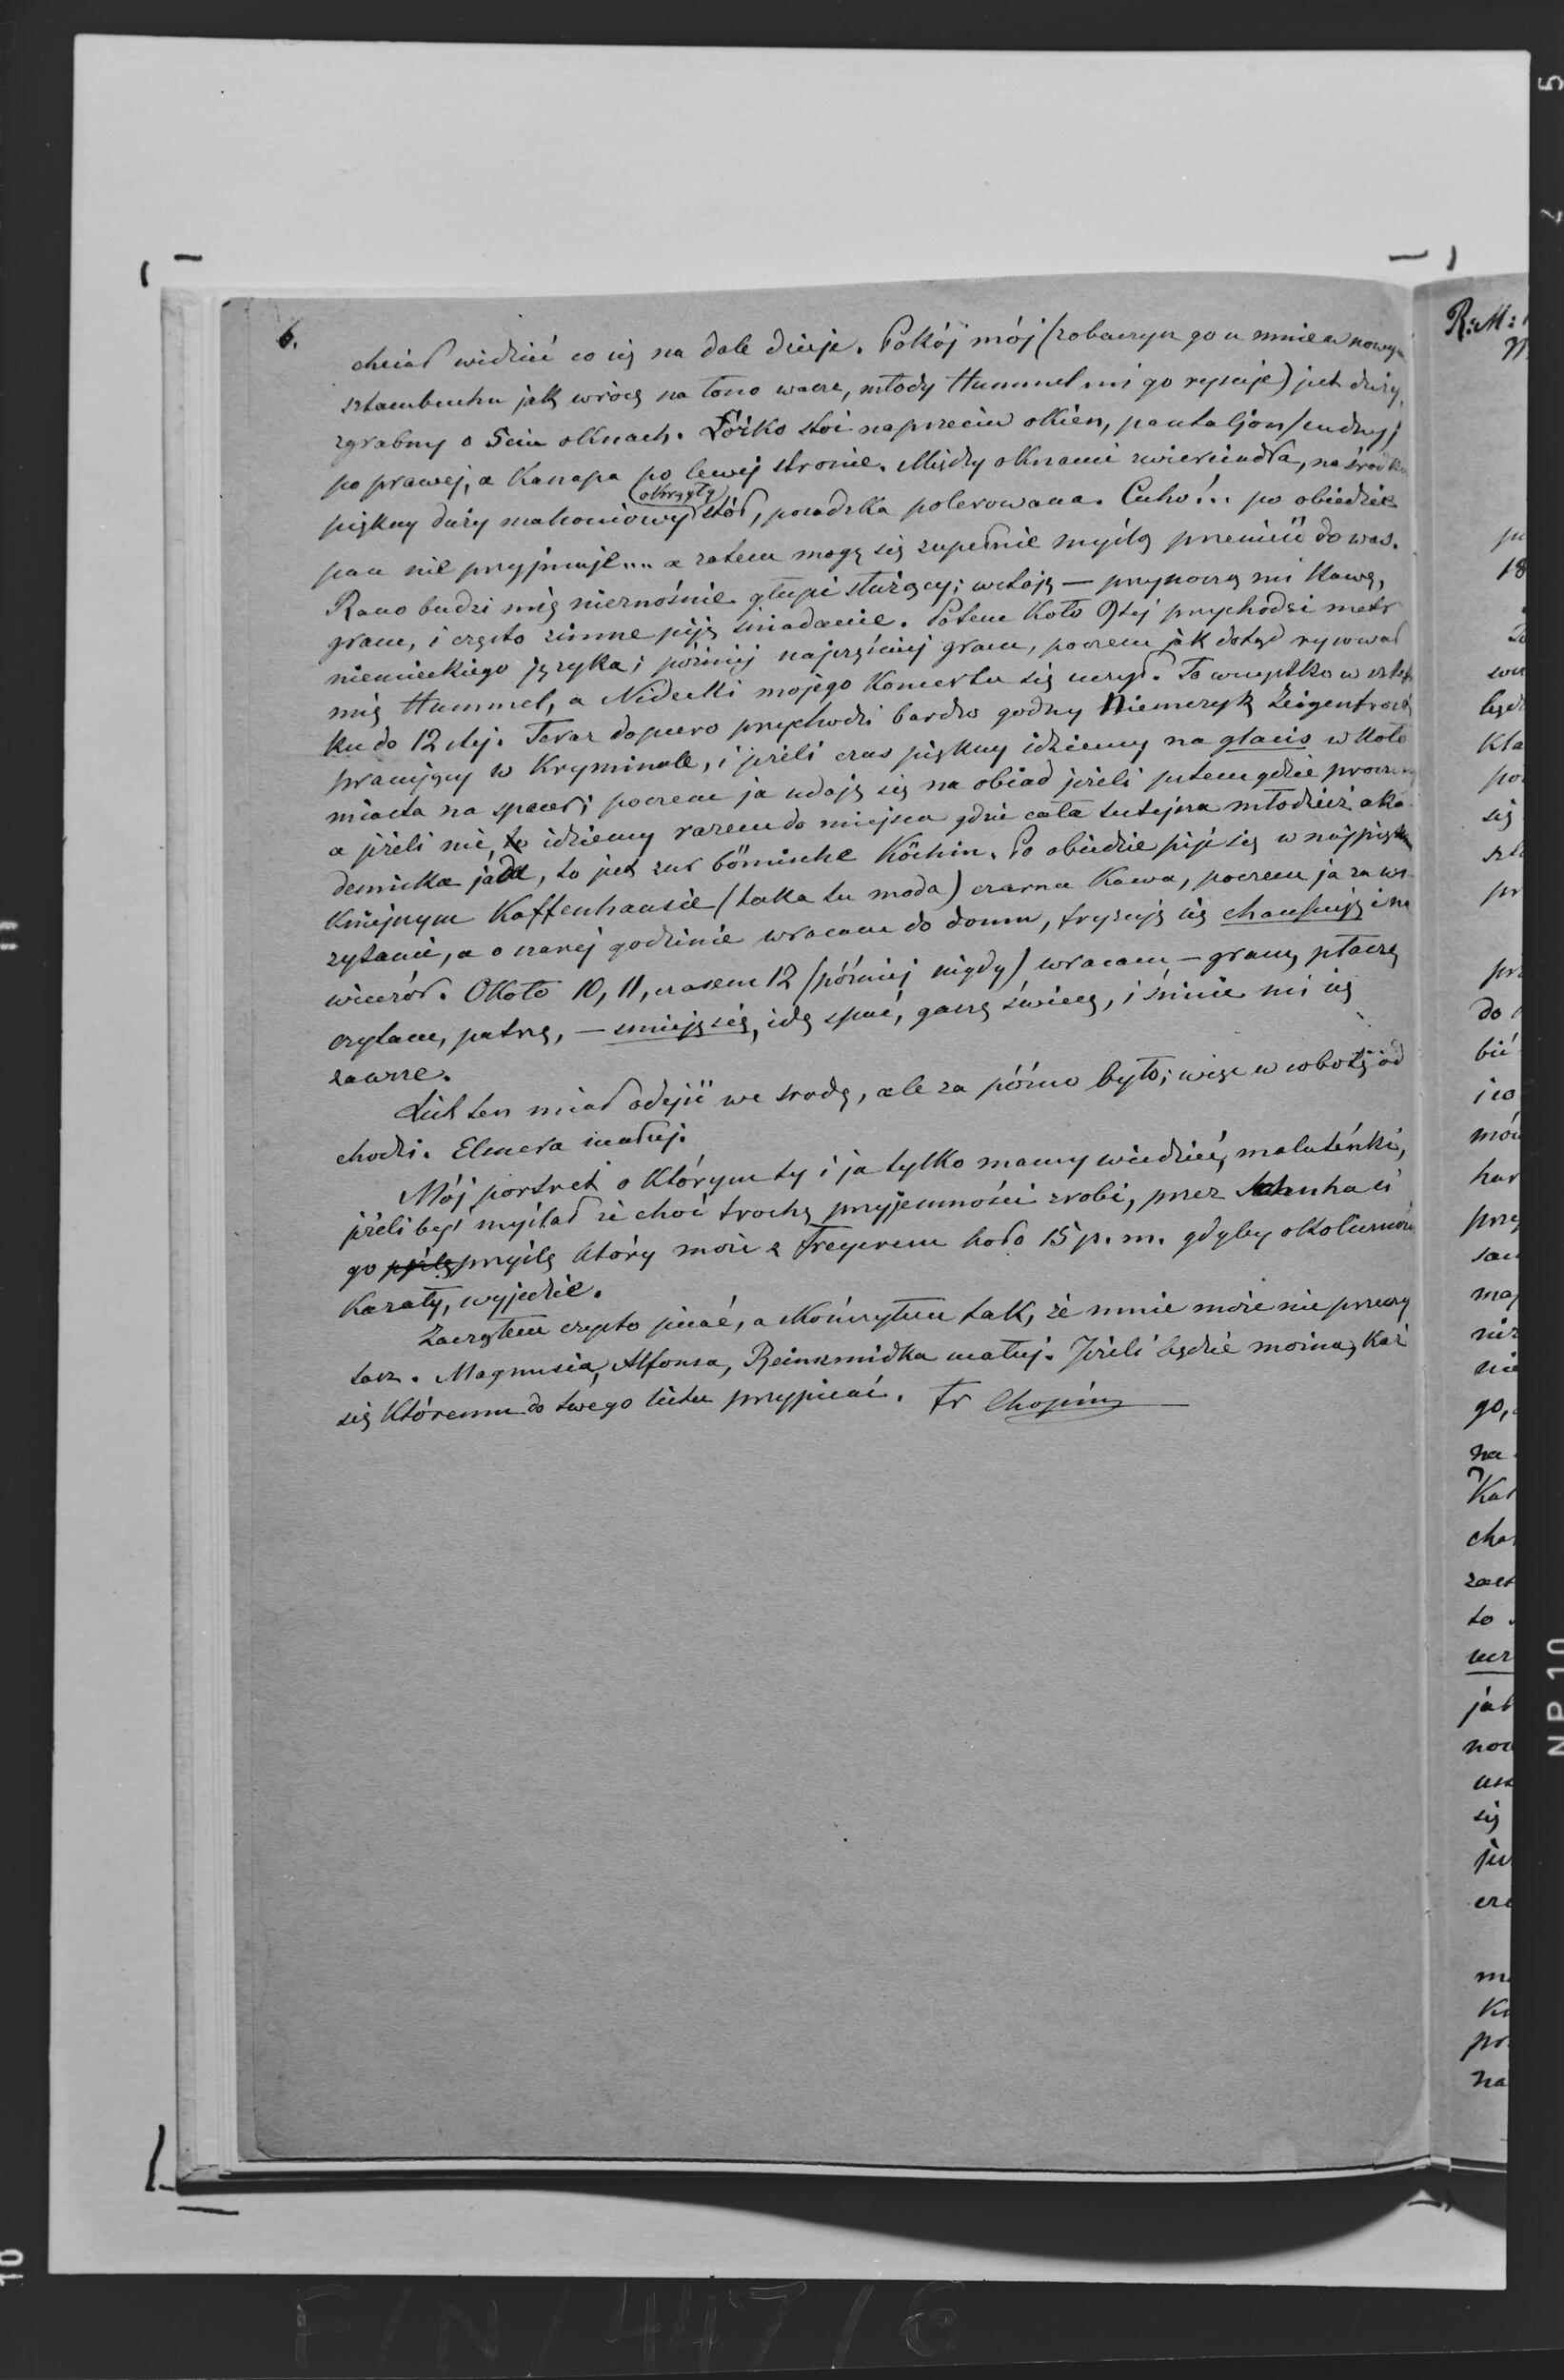 6.
chciał widzieć co się na dole dzieje. Pokój mój (zobaczysz go u mnie w nowym
sztambuchu jak wrócę na łono wasze, młody Hummel mi go rysuje) jest duży,
zgrabny o 5ciu oknach. Łóżko stoi naprzeciw okien, pantaljon (cudny)
po prawej, a Kanapa po lewej stronie. Między oknami zwierciadła, na środku
okrągły
piękny duży mahoniowy stół, posadzka polerowana. Cicho!.. po obiedzie
pan nie przyjmuje.... a zatem mogę się zupełnie myślą przenieść do was.
Rano budzi mię nieznośnie głupi służący; wstaję — przynoszą mi Kawę,
gram, i często zimne piję śniadanie. Potem Koło 9tej przychodzi metr
niemieckiego języka; później najczęściej gram, poczem jak dotąd rysował
mię Hummel, a Nidecki mojego Koncertu się uczył. To wszystko w szlafr
ku do 12stej. Teraz dopiero przychodzi bardzo godny Niemczyk
pracujący w Kryminale, i jeżeli czas piękny idziemy na glacis w koło
miasta na spacer; poczem ja udaję się na obiad jeżeli jestem gdzie proszony
a jeżeli nie, to idziemy razem do miejsca gdzie cała tutejsza młodzież aka
demicka jáda, to jest zur bömische Köchin. Po obiedzie pije się w najpięk
kniejszym Kaffenhausie (taka tu moda) czarna Kawa, poczem ja za wi
zytami, a o szarej godzinie wracam do domu, fryzuję się chaussuję i na
wieczór. Około 10, 11, czasem 12 (później nigdy) wracam — gram, płaczę
czytam, patrzę, — smieję się, idę spać, gaszę świecę, i śnicie mi się
zawsze.
List ten miał odejść we srodę, ale za późno było; więc w sobotę od
chodzi. Elsnera ucałuj.
Mój portret o którym ty i ja tylko mamy wiedzieć, maluteńki,
jeżeli byś myślał że choć trochę przyjemności zrobi, przez Schucha ci
go przyślę który może z Freyerem koło 15 p. m. gdyby okoliczności
kazały, wyjedzie.
Zacząłem czysto pisać, a skończyłem tak, że mnie może nie przeczy
tasz. Magnusia, Alfonsa, Reinszmidka uściskaj. Jeżeli będzie można, każ
się któremu do twego listu przypisać. Fr Chopin
R: M:
18
Kła
się
pr
do
bić
mów
har
prz
maj
nie
go,
na
cho
to
jak
now
się
na
NP 10
5
10
F/N/447/6